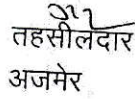 तहसीलदार
अजमेर